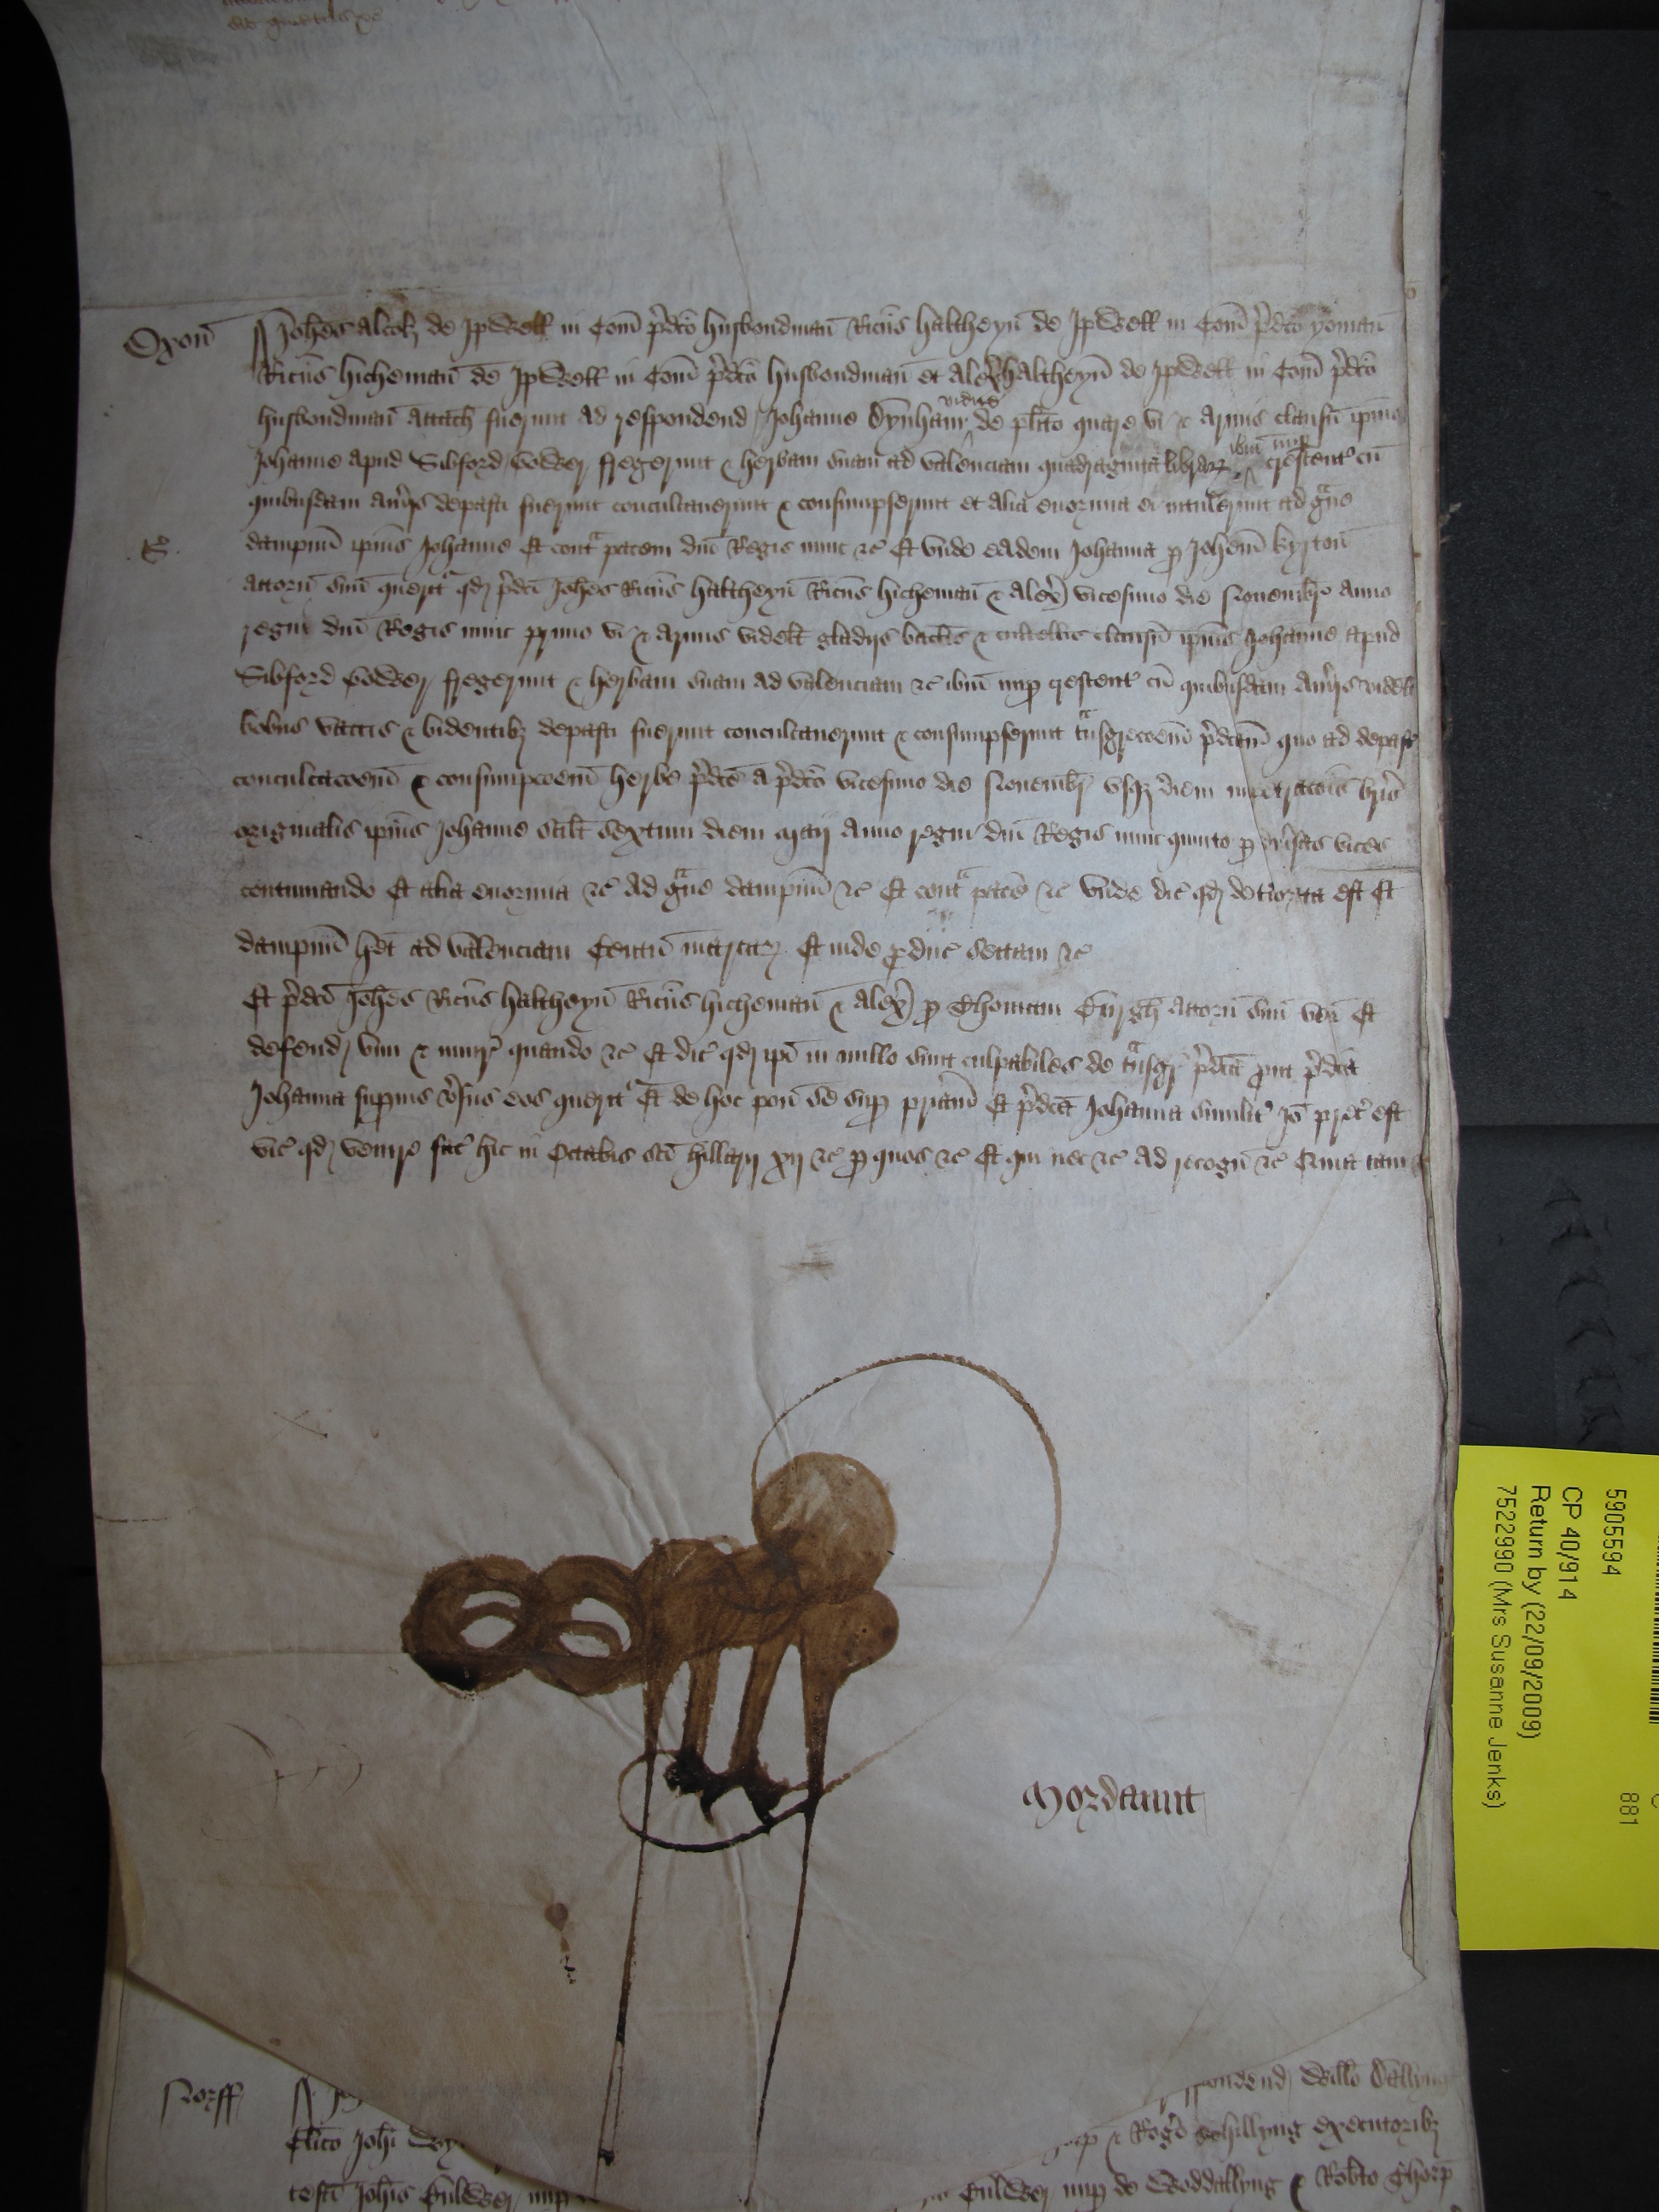 die quatuor xxe
Oxon̄ Joh̄es Alcok de Ippwell in Com̄ p̄dc̄o husbondman̄ Ric̄us haltheyn̄ de Ippwell in Com̄ p̄dc̄o yoman̄
Ric̄us hicheman̄ de Ippwell in Com̄ p̄dc̄o husbondman̄ et Alex̄ haltheyn̄ de Ippwell in Com̄ p̄dc̄o
husbondman̄ attach̄ fuerunt ad respondend Johanne Dynham vidue de pl̄ito quare vi & armis clausū ip̄ius
Johanne apud Sibford Gower fregerunt & herbam suam ad valenciam quadraginta librar ib̄m nup crescent' cū
quibusdam aūijs depasti fuerunt conculcauerunt & consumpserunt et alia enormia ei intulerunt ad gᵃue
dampnū ip̄ius Johanne Et contᵃ pacem dn̄i Regis nunc &c Et vnde eadem Johanna p Joh̄em kyrton̄
attorn̄ suū querit' qd p̄dc̄i Joh̄es Ric̄us haltheyn̄ Ric̄us hicheman̄ & Alex̄ vicesimo die Nouembr' anno
regni dn̄i Regis nunc primo vi & armis videlt gladijs bac̄lis & cultellis clausū ip̄ius Johanne apud
Sibford Gower fregerunt & herbam suam ad valenciam &c ib̄m nup crescent' cū quibusdam aūijs videlt
bobus vaccis & bidentibz depasti fuerunt conculcauerunt & consumpserunt tᵃnsgressoem̄ p̄dcam̄ quo ad depast'
conculcacoem̄ & consumpcoem̄ herbe p̄dc̄e a p̄dc̄o vicesimo die Nouembr' vsqz diem impetracōis br̄is
originalis ip̄ius Johanne scilt sextum diem Maij anno regni dn̄i Regis nunc quinto p diūsas vices
continuando Et alia enormia &c ad gᵃue dampnū &c Et contᵃ pacē &c vnde dic' qd det'iorata est Et
dampnū het ad valenciam Centū marcar Et inde producit sectam &c
Et p̄dc̄i Joh̄es Ric̄us haltheyn̄ Ric̄us hicheman̄ & Alex̄ p Thomam attorn̄ suū ven̄ Et
defend vim & iniur' quando &c Et dic' qd ip̄i in nullo sunt culpabiles de tᵃnsgr' p̄dc̄a prout p̄dc̄a
Johanna superius v̄sus eos querit' Et de hoc pon̄ se sup pr̄iam Et p̄dc̄a Johanna similit' Jō prec' est
vic' qd venire fac' hic in Octabis sc̄i hillarij xij &c p quos &c Et qui nec &c ad recogn̄ &c Quia tam
Mordaunt
Norff
spondend Will̄o
Cl̄ico Joh̄i & Rog̃o Schillyng executoribz
testī Joh̄is nup nup de Woddallyng & Rob̄to Thorp
5905594
CP 40/914
Return by (22/09/2009)
7522990 (Mrs Susanne Jenks)
881